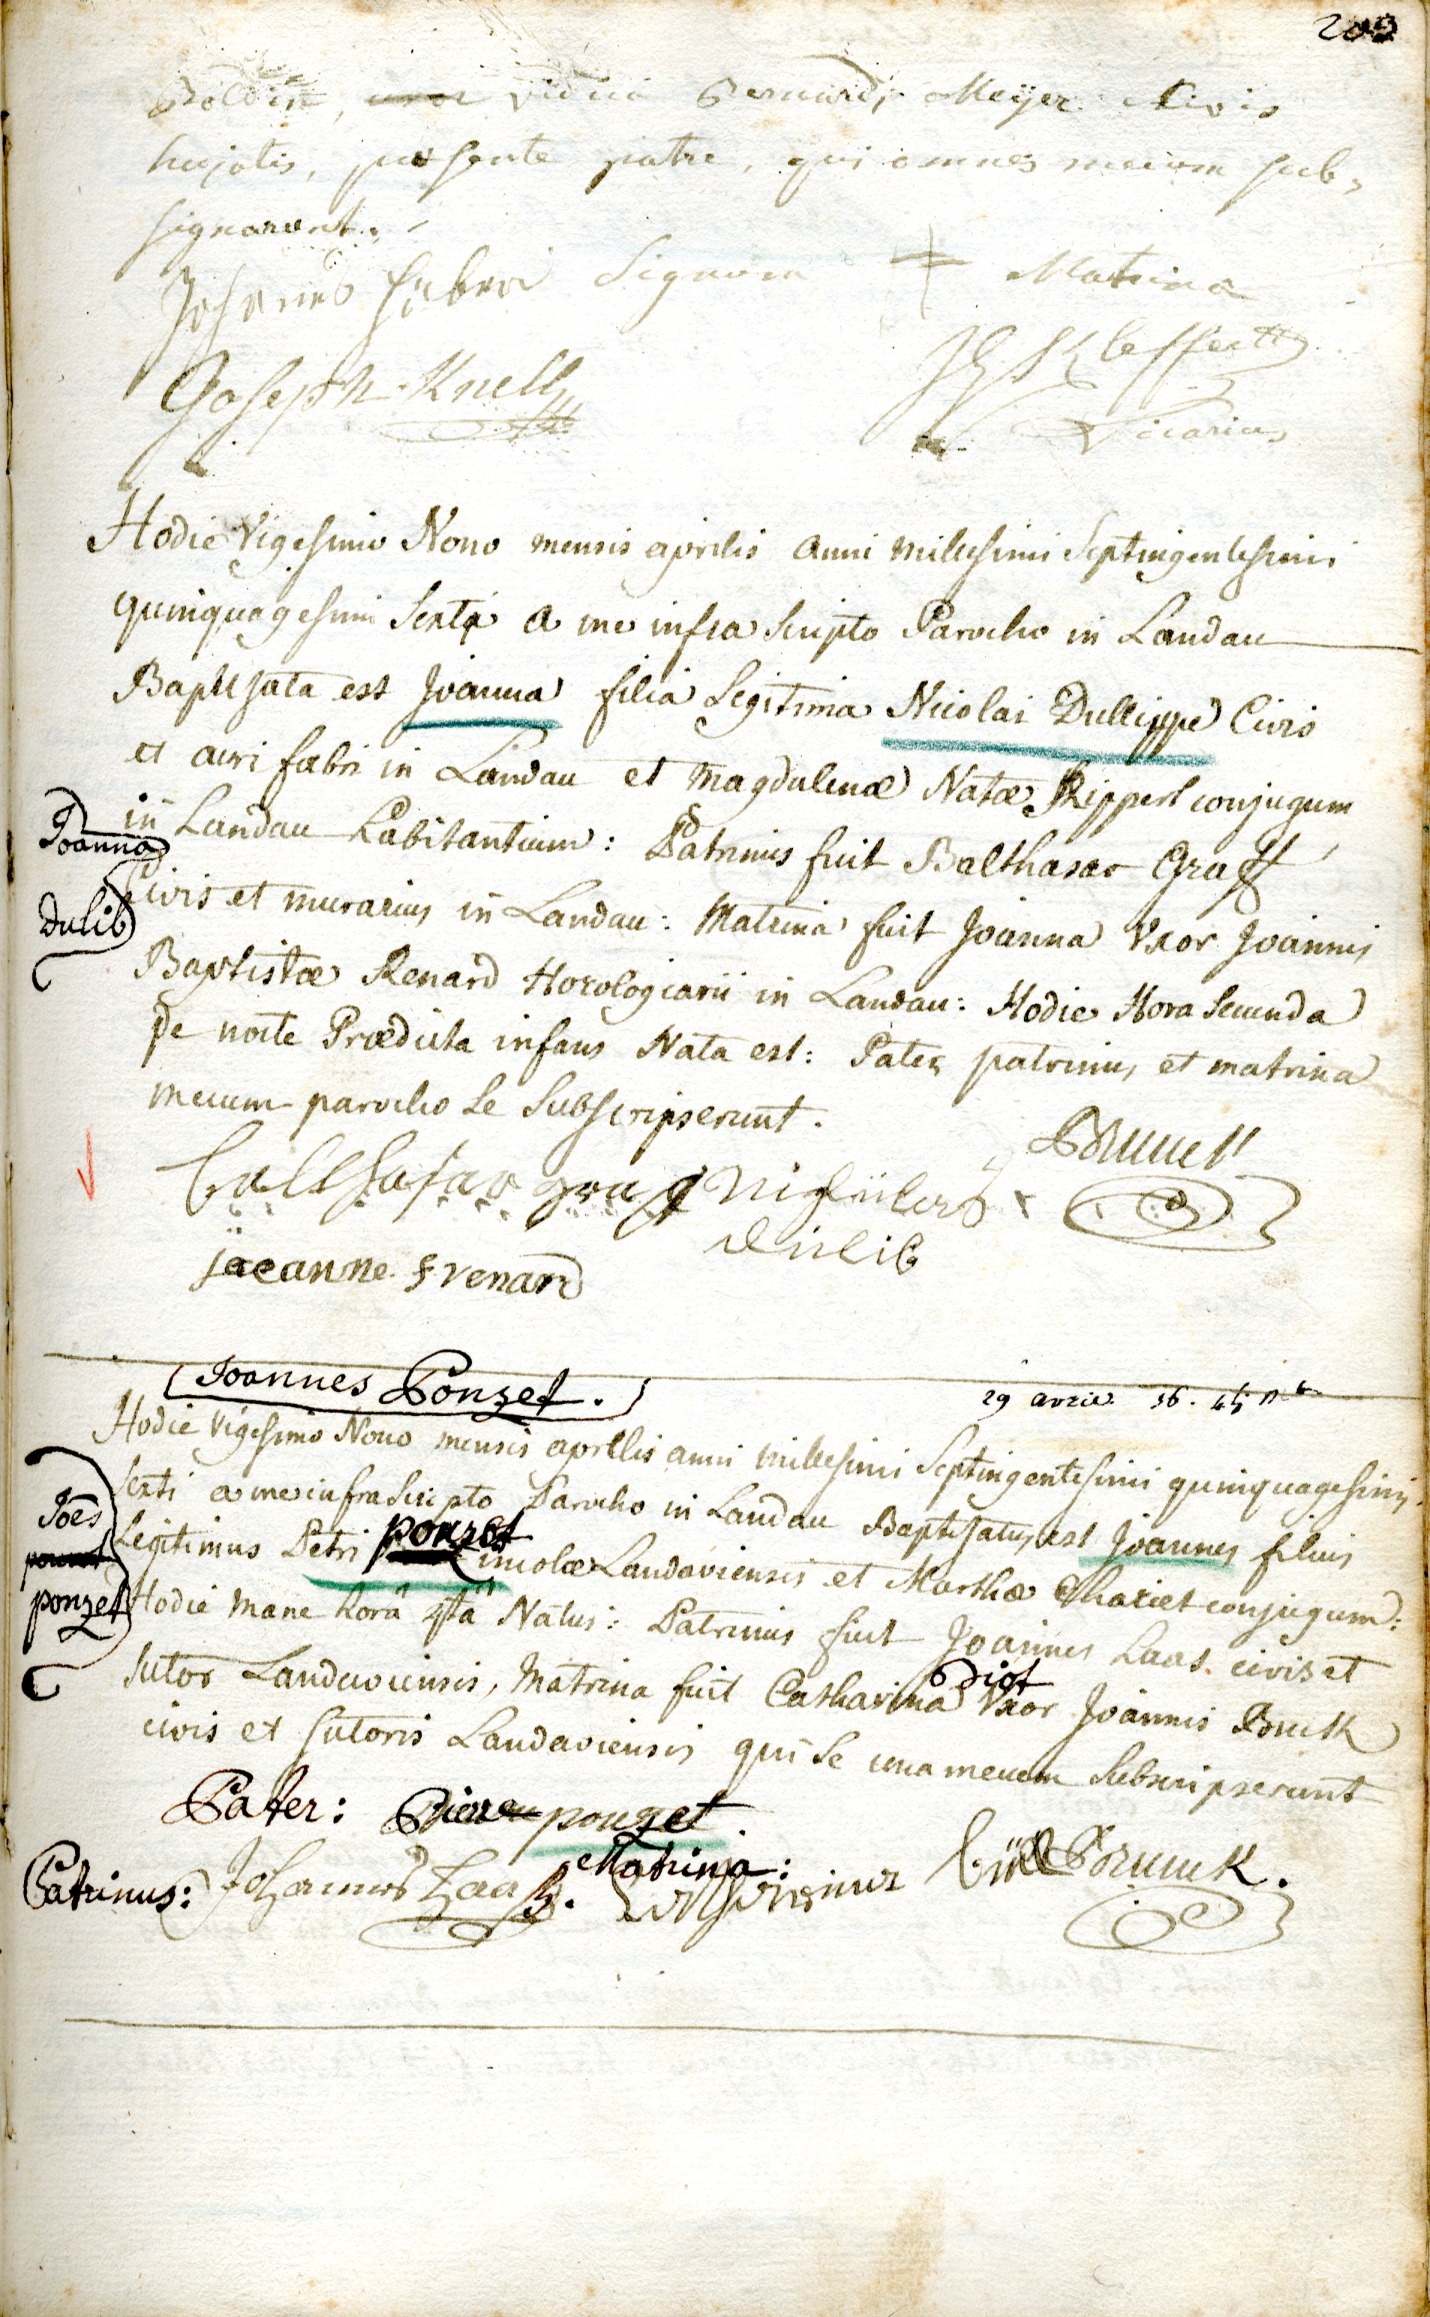 203
Boldin, uxor vidua Bernardi Meÿer Civis
hujatis, præsente patre, qui omnes mecum sub-
signarunt.
Johannes Hubera Signum Matrina
Joseph Knell
Vicarius
Hodie Vigesimo Nono mensis aprilis anni millesimi Septingentesimi
quinquagesimi Sexti a me infra Scripto Parocho in Landau
Baptisata est Joanna filia Legitima Nicolai Dullippe Civis
et auri fabri in Landau et Magdalenæ Natæ Rippert conjugum
in Landau habitantium: Patrinus fuit Balthasar Graff
Joanna
Civis et murarius in Landau: Matrina fuit Joanna Uxor Joannis
Dulib
Baptistæ Renard Horologiarii in Landau: Hodie Hora Secunda
de nocte Prædicta infans Nata est: Pater patrinus et matrina
mecum parocho Se Subscripserunt.
Ballhasar graff Niglülas Brunck
dulib
jaeanne f renard
Joannes Ponzet. 29 avril. 56.
Hodie Vigesimo Nono mensis aprilis anni millesimi Septingentesimi quinquagesimi
Sexti a me infra Scripto Parocho in Landau Baptisatus est Joannes filius
Joēs
Legitimus Petri ponzet incolæ Landaviensis et Marthæ Chariet conjugum:
ponzet
Hodie mane horâ 4tâ Natus: Patrinus fuit Joannes Laas civis et
Sutor Landaviensis, Matrina fuit Catharina Diot Uxor Joannis Bruck
civis et Sutoris Landaviensis qui Se una mecum Subscripserunt
Pater: Piere ponzet.
Matrina:
Patrinus: Johannes Laas. Brunck.